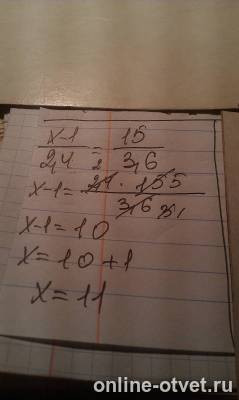 x-1/2,4 = 15/3,6
x-1 = 2,4 · 15 5 / 3,6
x-1 = 10
x = 10+1
x = 11
online-otvet.ru